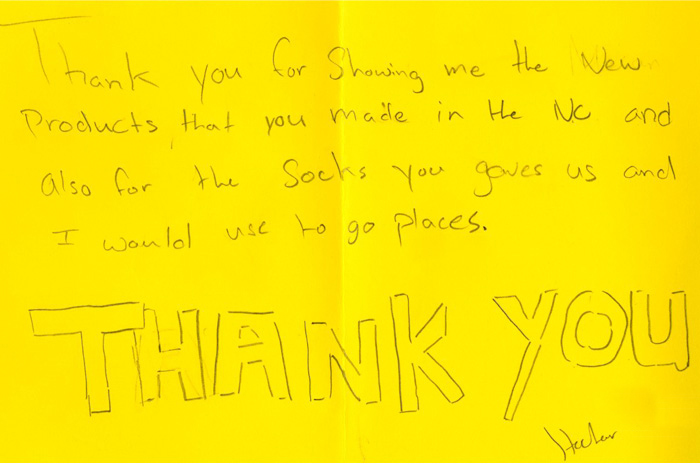 Thank you for Showing me the New
Products, that you made in the NC and
also for the Socks you gaves us and
I would use to go places.
THANK YOU